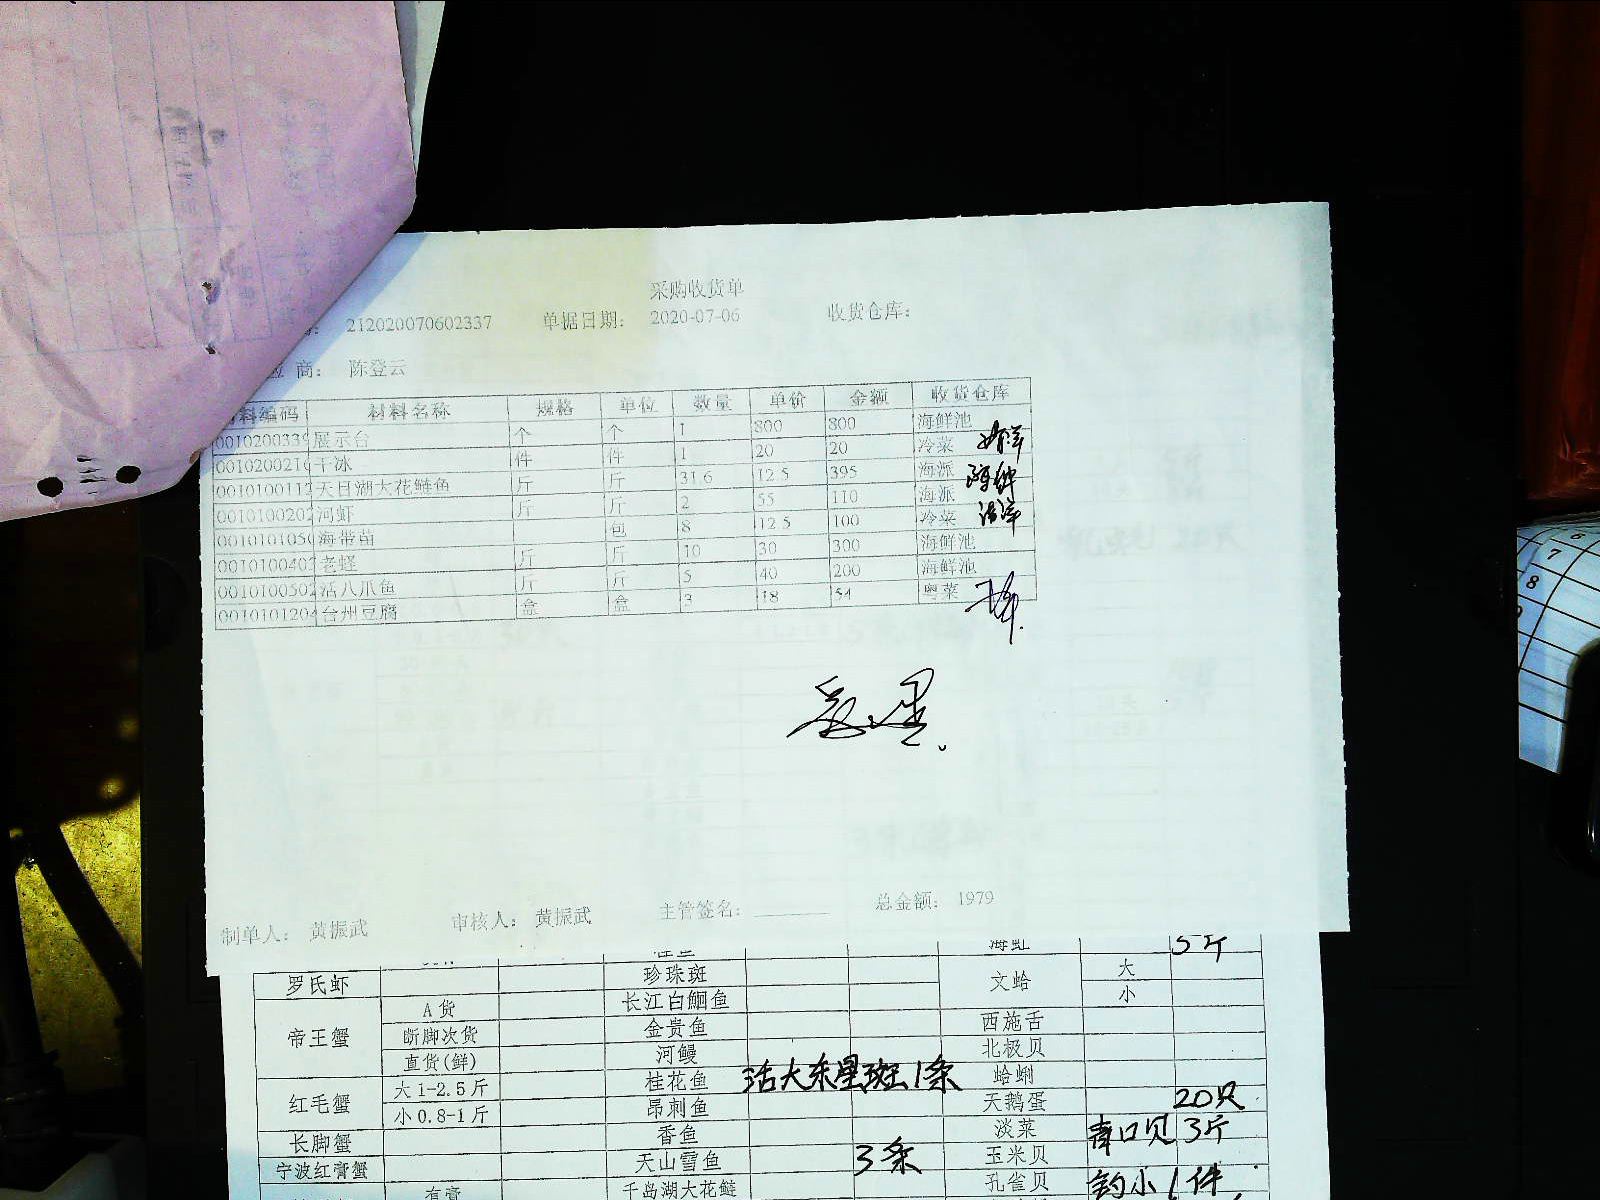 采购收货单
212020070602337 单据日期： 2020-07-06 收货仓库：
商： 陈登云
料编码 材料名称 规格 单位 数量 单价 金额 收货仓库
001020033 展示台 个 个 1 800 800 海鲜池
001020021 干冰 件 件 1 20 20 冷菜
001010011 天目湖大花鲢鱼 斤 斤 31.6 12.5 395 海派
001010020 河虾 斤 斤 2 55 110 海派
001010105 海带苗 包 8 12.5 100 冷菜
001010040 老蛏 斤 斤 10 30 300 海鲜池
001010050 活八爪鱼 斤 斤 5 40 200 海鲜池
001010120 台州豆腐 盒 盒 3 18 54 粤菜
制单人： 黄振武 审核人： 黄振武 主管签名： 总金额： 1979
海虹 5斤
罗氏虾 珍珠斑 文蛤 大
帝王蟹 A货 长江白鮰鱼 小
断脚次货 金贵鱼 西施舌
直货(鲜) 河鳗 北极贝
红毛蟹 大1-2.5斤 桂花鱼 活大东星斑1条 蛤蜊
小0.8-1斤 昂刺鱼 天鹅蛋 20只
长脚蟹 香鱼 淡菜 青口贝 3斤
宁波红膏蟹 天山雪鱼 3条 玉米贝
有膏 千岛湖大花鲢 孔雀贝